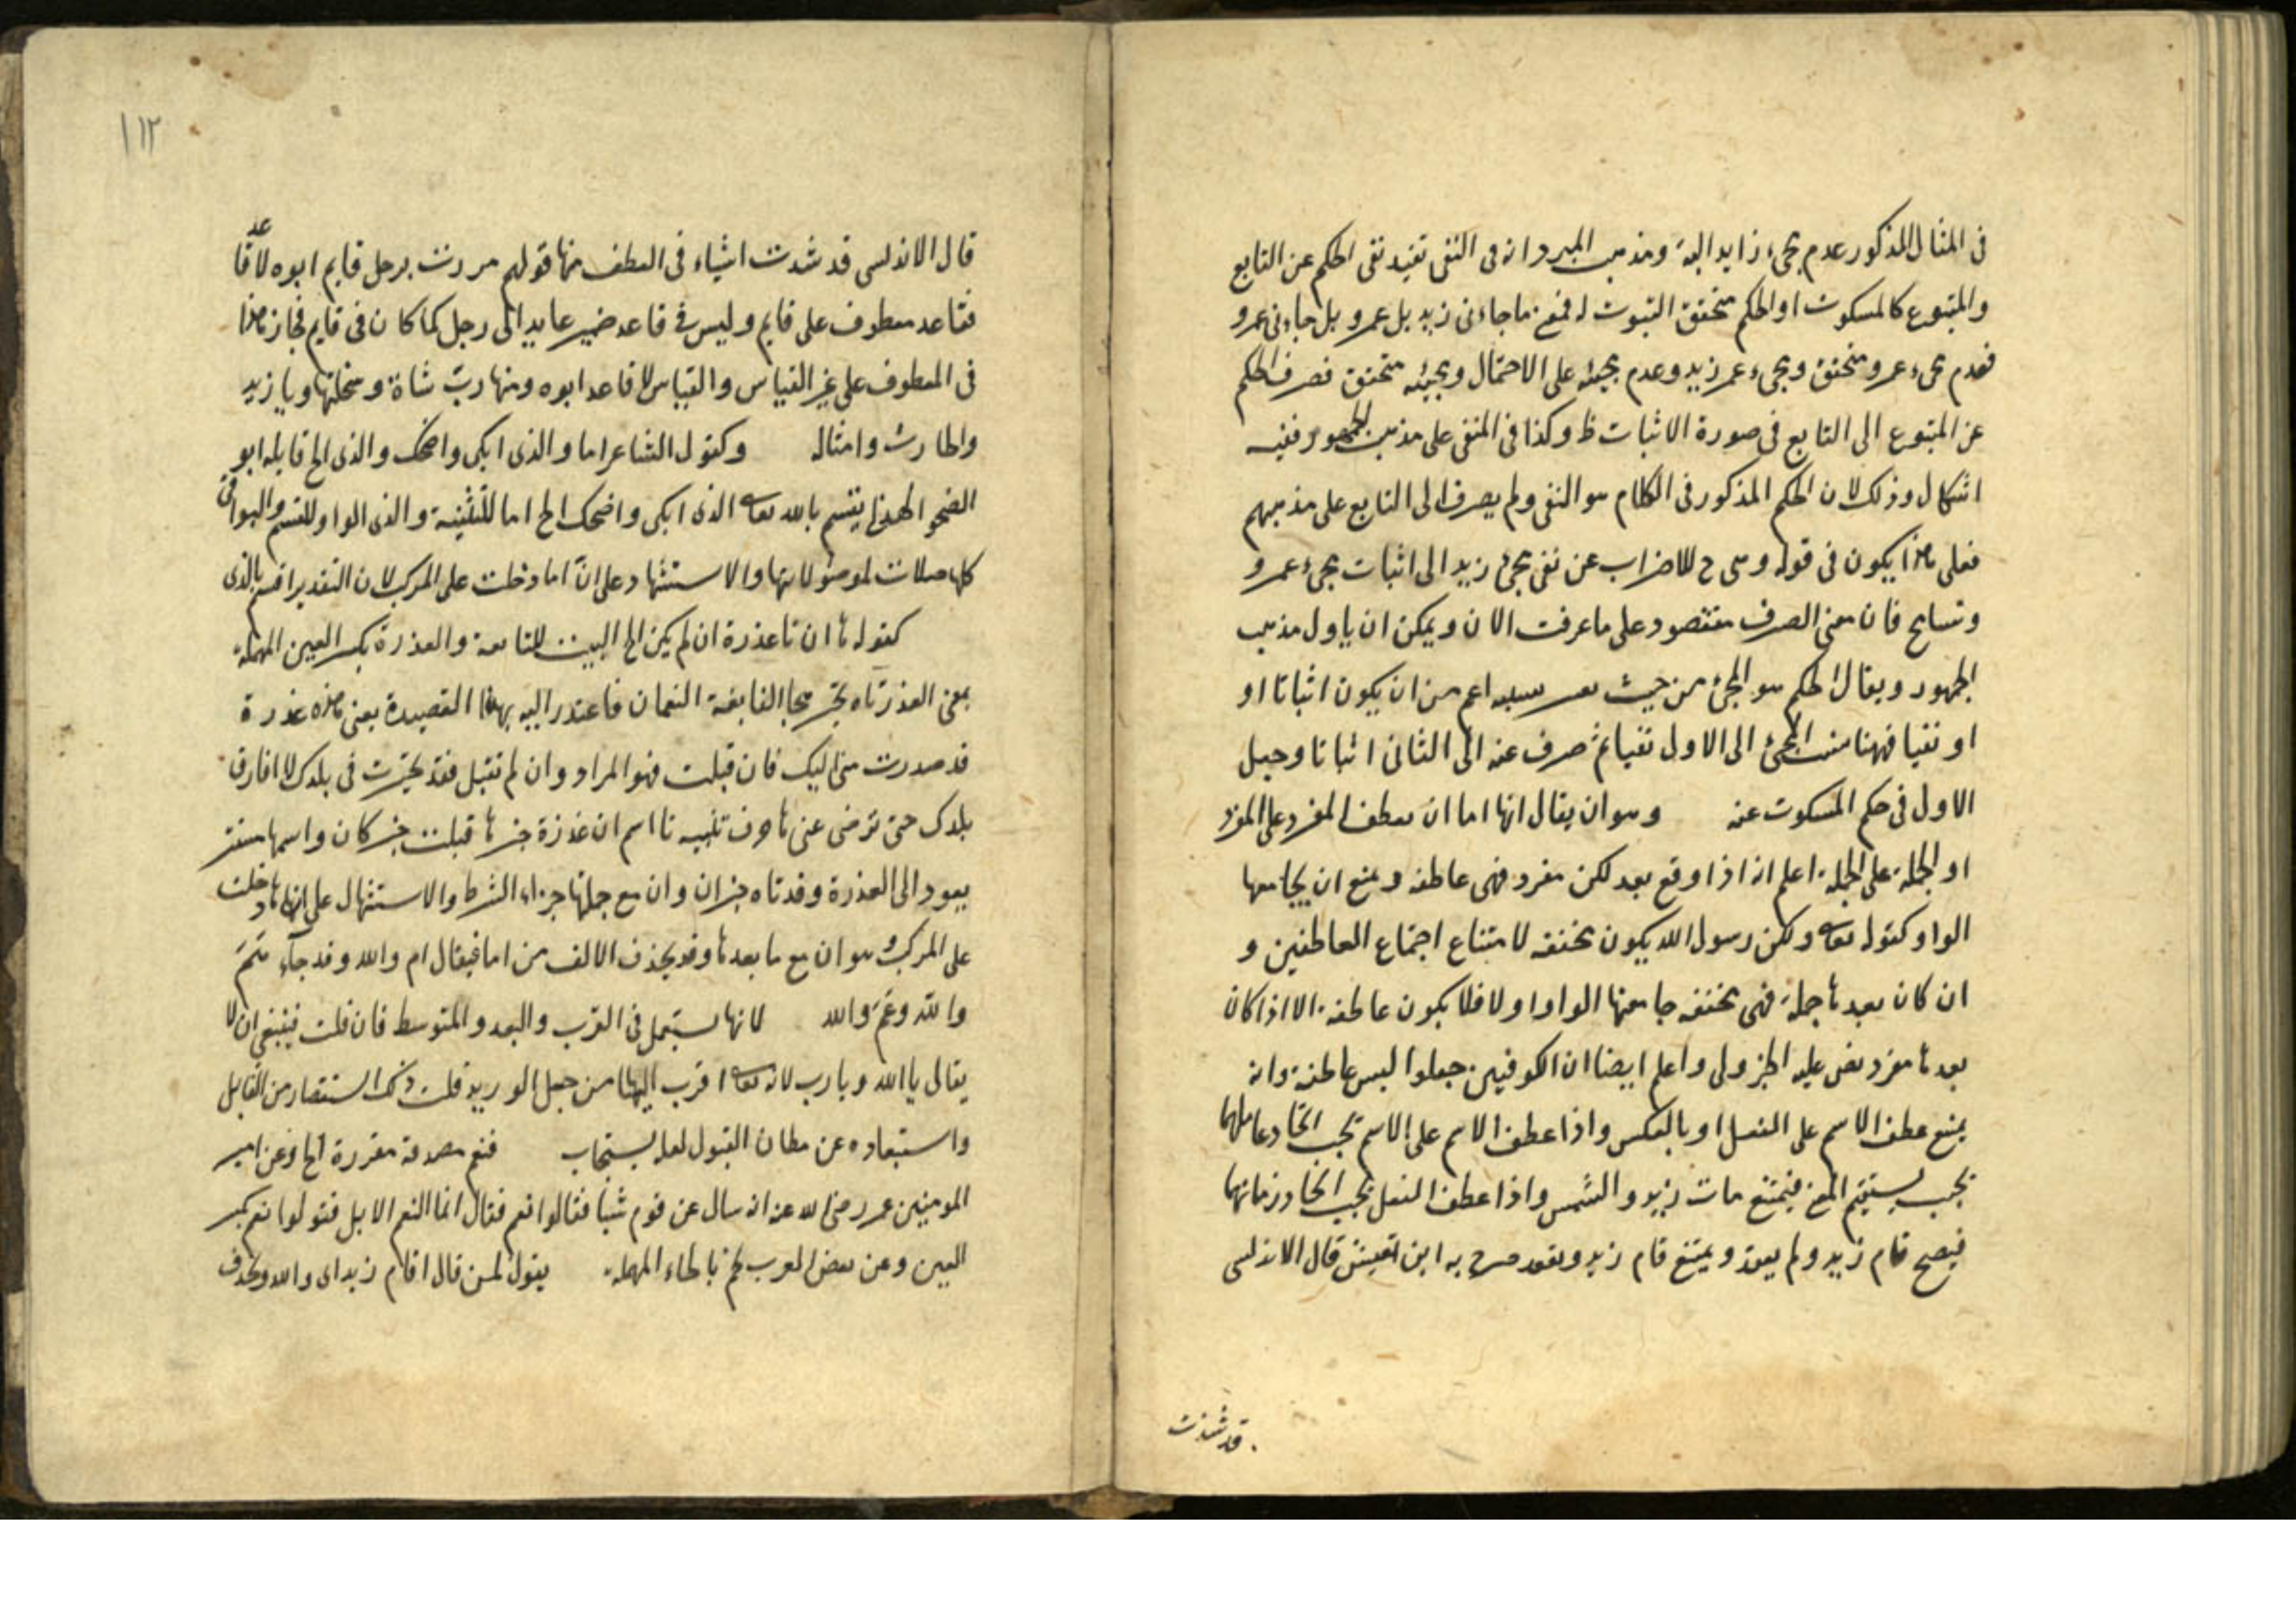 فى المثال المذكور عدم مجىء زيد البتة ومذهب المبرد انه فى النفى تفيد نفى الحكم عن التابع
والمتبوع كالمسكوت او الحكم متحقق الثبوت له فمعنى ما جاءنى زيد بل عمرو بل جاءنى عمرو
فعدم مجىء عمرو متحقق ومجىء زيد وعدم مجيئه على الاحتمال ومجيئه متحقق فصرف الحكم
عن المتبوع الى التابع فى صورة الاثبات ظ وكذا فى المنفى على مذهب الجمهور ففيه
اشكال وذلك لان الحكم المذكور فى الكلام هو النفى ولم يصرف الى التابع على مذهبهم
فعلى هذا يكون فى قوله وهى ح للاضراب عن نفى مجىء زيد الى اثبات مجىء عمرو
وتسامح فان معنى الصرف مقصود على ما عرفت الان ويمكن ان ياول مذهب
الجمهور ويقال الحكم هو المجئ من حيث هو اعم من ان يكون اثباتا او
او نفيا فههنا نسب المجئ الى الاول نفيا ثم صرف عنه الى الثانى اثباتا وجعل
الاول فى حكم المسكوت عنه وهو ان يقال انها اما ان تعطف المفرد على المفرد
او الجملة على الجملة اعلم انه اذا وقع بعد لكن مفرد فهى عاطفة ويمنع ان يجامعها
الواو كقوله تعالى ولكن رسول الله يكون مخففة لامتناع اجتماع العاطفين و
ان كان بعدها جملة فهى مخففة جامعها الواو اولا فلا يكون عاطفة الا اذا كان
بعدها مفرد نص عليه الجزولى واعلم ايضا ان الكوفيين جعلوا ليس عاطفة وانه
يمنع عطف الاسم على الفعل او بالعكس واذا عطف الاسم على الاسم يجب اتحاد عاملهما
بحيث يستقيم المعنى فيمتنع مات زيد والشمس واذا عطف الفعل يجب اتحاد زمانهما
فيصح قام زيد ولم يقعد ويمتنع قام زيد ويقعد صرح به ابن يعيش قال الاندلسى
قد شذت
١١٢
قال الاندلسى قد شذت اشياء فى العطف منها قولهم مررت برجل قايم ابوه لا قاعد
فقاعد معطوف على قايم وليس فى قاعد ضمير عايد الى رجل كما كان فى قايم فجاز هذا
فى المعطوف على غير القياس والقياس لا قاعد ابوه ومنها رب شاة وسخلتها ويا زيد
والحارث وامثاله وكقول الشاعر اما والذى ابكى واضحك والذى الخ قايله ابو
الصخر الهذلى يقسم بالله تعالى الذى ابكى واضحك الخ اما للتنبيه والذى الواو للقسم والبواقى
كلها صلات لموصولاتها والاستشهاد على ان اما دخلت على المركب لان التقدير اقسم بالذى
كقوله ها ان تا عذرة ان لم يكن الخ البيت للنابغة والعذرة بكسر العين المهملة
بمعنى العذر تاه تحير هجا النابغة النعمان فاعتذر اليه بهذا القصيدة يعنى هذه عذرة
قد صدرت منى اليك فان قبلت فهو المراد وان لم تقبل فقد تحيرت فى بلدك لا افارق
بلدك حتى ترضى عنى ها حرف تنبيه تا اسم ان عذرة خبرها قبلت خبر كان واسمها مستتر
يعود الى العذرة وقد تاه خبر ان وان مع جملتها جزاء الشرط والاستشهال على انها دخلت
على المركب وهو ان مع ما بعدها وقد يحذف الالف من اما فيقال ام والله وقد جاء هَمَ
والله وعَمَ والله لانها يستعمل فى القرب والبعد والمتوسط فان قلت فينبغى ان لا
يقال يا الله ويا رب لانه تعالى اقرب الينا من حبل الوريد قلت ذلك استقصار من القايل
واستبعاده عن مظان القبول لعله يستجاب فنعم مصدقة مقررة الخ وعن امير
المومنين عمر رضى الله عنه انه سال عن قوم شيا فقالوا نعم فقال انما النعم الابل فقولوا نعم بكسر
العين وعن بعض العرب نحم بالحاء المهملة يقول لمن قال اقام زيد اى والله ويحذف